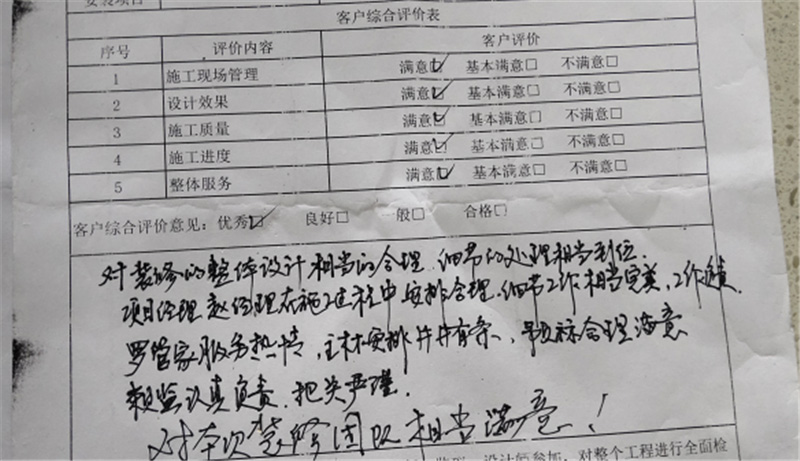 安装项目
客户综合评价表
序号 评价内容 客户评价
1 施工现场管理 满意☑ 基本满意□ 不满意□
2 设计效果 满意☑ 基本满意□ 不满意□
3 施工质量 满意☑ 基本满意□ 不满意□
4 施工进度 满意☑ 基本满意□ 不满意□
5 整体服务 满意☑ 基本满意□ 不满意□
客户综合评价意见：优秀☑ 良好□ 般□ 合格□
对装修的整体设计相当的合理，细节的处理相当到位。
项目经理赵经理在施工过程中安排合理，细节工作相当完美，工作负责.
罗管家服务热情，主材安排井井有条，合理满意
赖监认真负责，把关严谨.
对本次装修团队相当满意！
设计师参加，对整个工程进行全面检